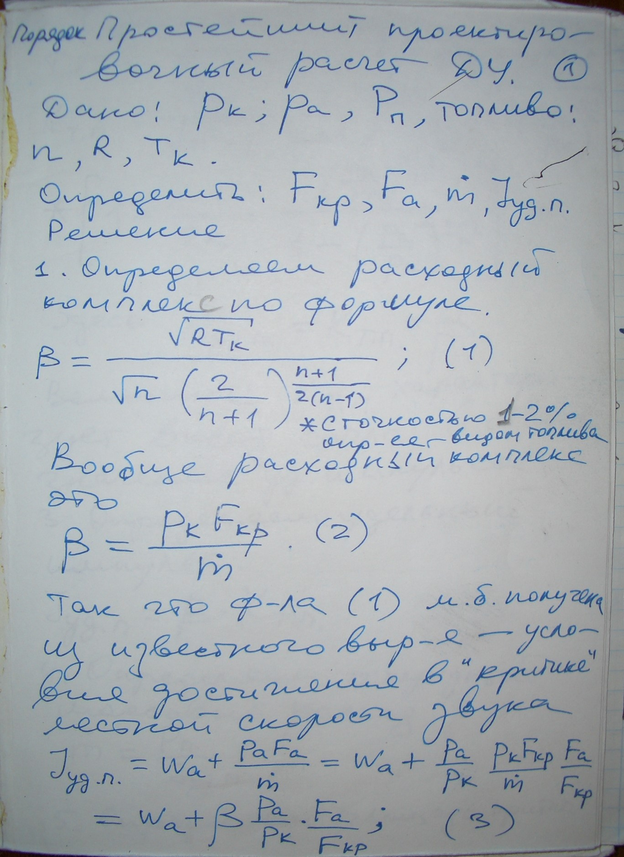 Порядок Простейший проектиро-
вочный расчет ДУ. ①
Дано: pк; pa, Pп, топливо:
n, R, Tк.
Определить: Fкр, Fa, ṁ, Jуд.п.
Решение
1. Определяем расходный
комплекс по формуле.
β = √RTк / (√n (2/(n+1))^((n+1)/(2(n-1)))) ; (1)
* с точностью 1-2%
опр-ся видом топлива
Вообще расходный комплекс
это
β = pк Fкр / ṁ . (2)
Так что ф-ла (1) м.б. получена
из известного выр-я — усло-
вия достижения в "критике"
местной скорости звука
Jуд.п. = Wa + pa Fa / ṁ = Wa + pa/pк pк Fкр/ṁ Fa/Fкр
= Wa + β pa/pк · Fa/Fкр ; (3)